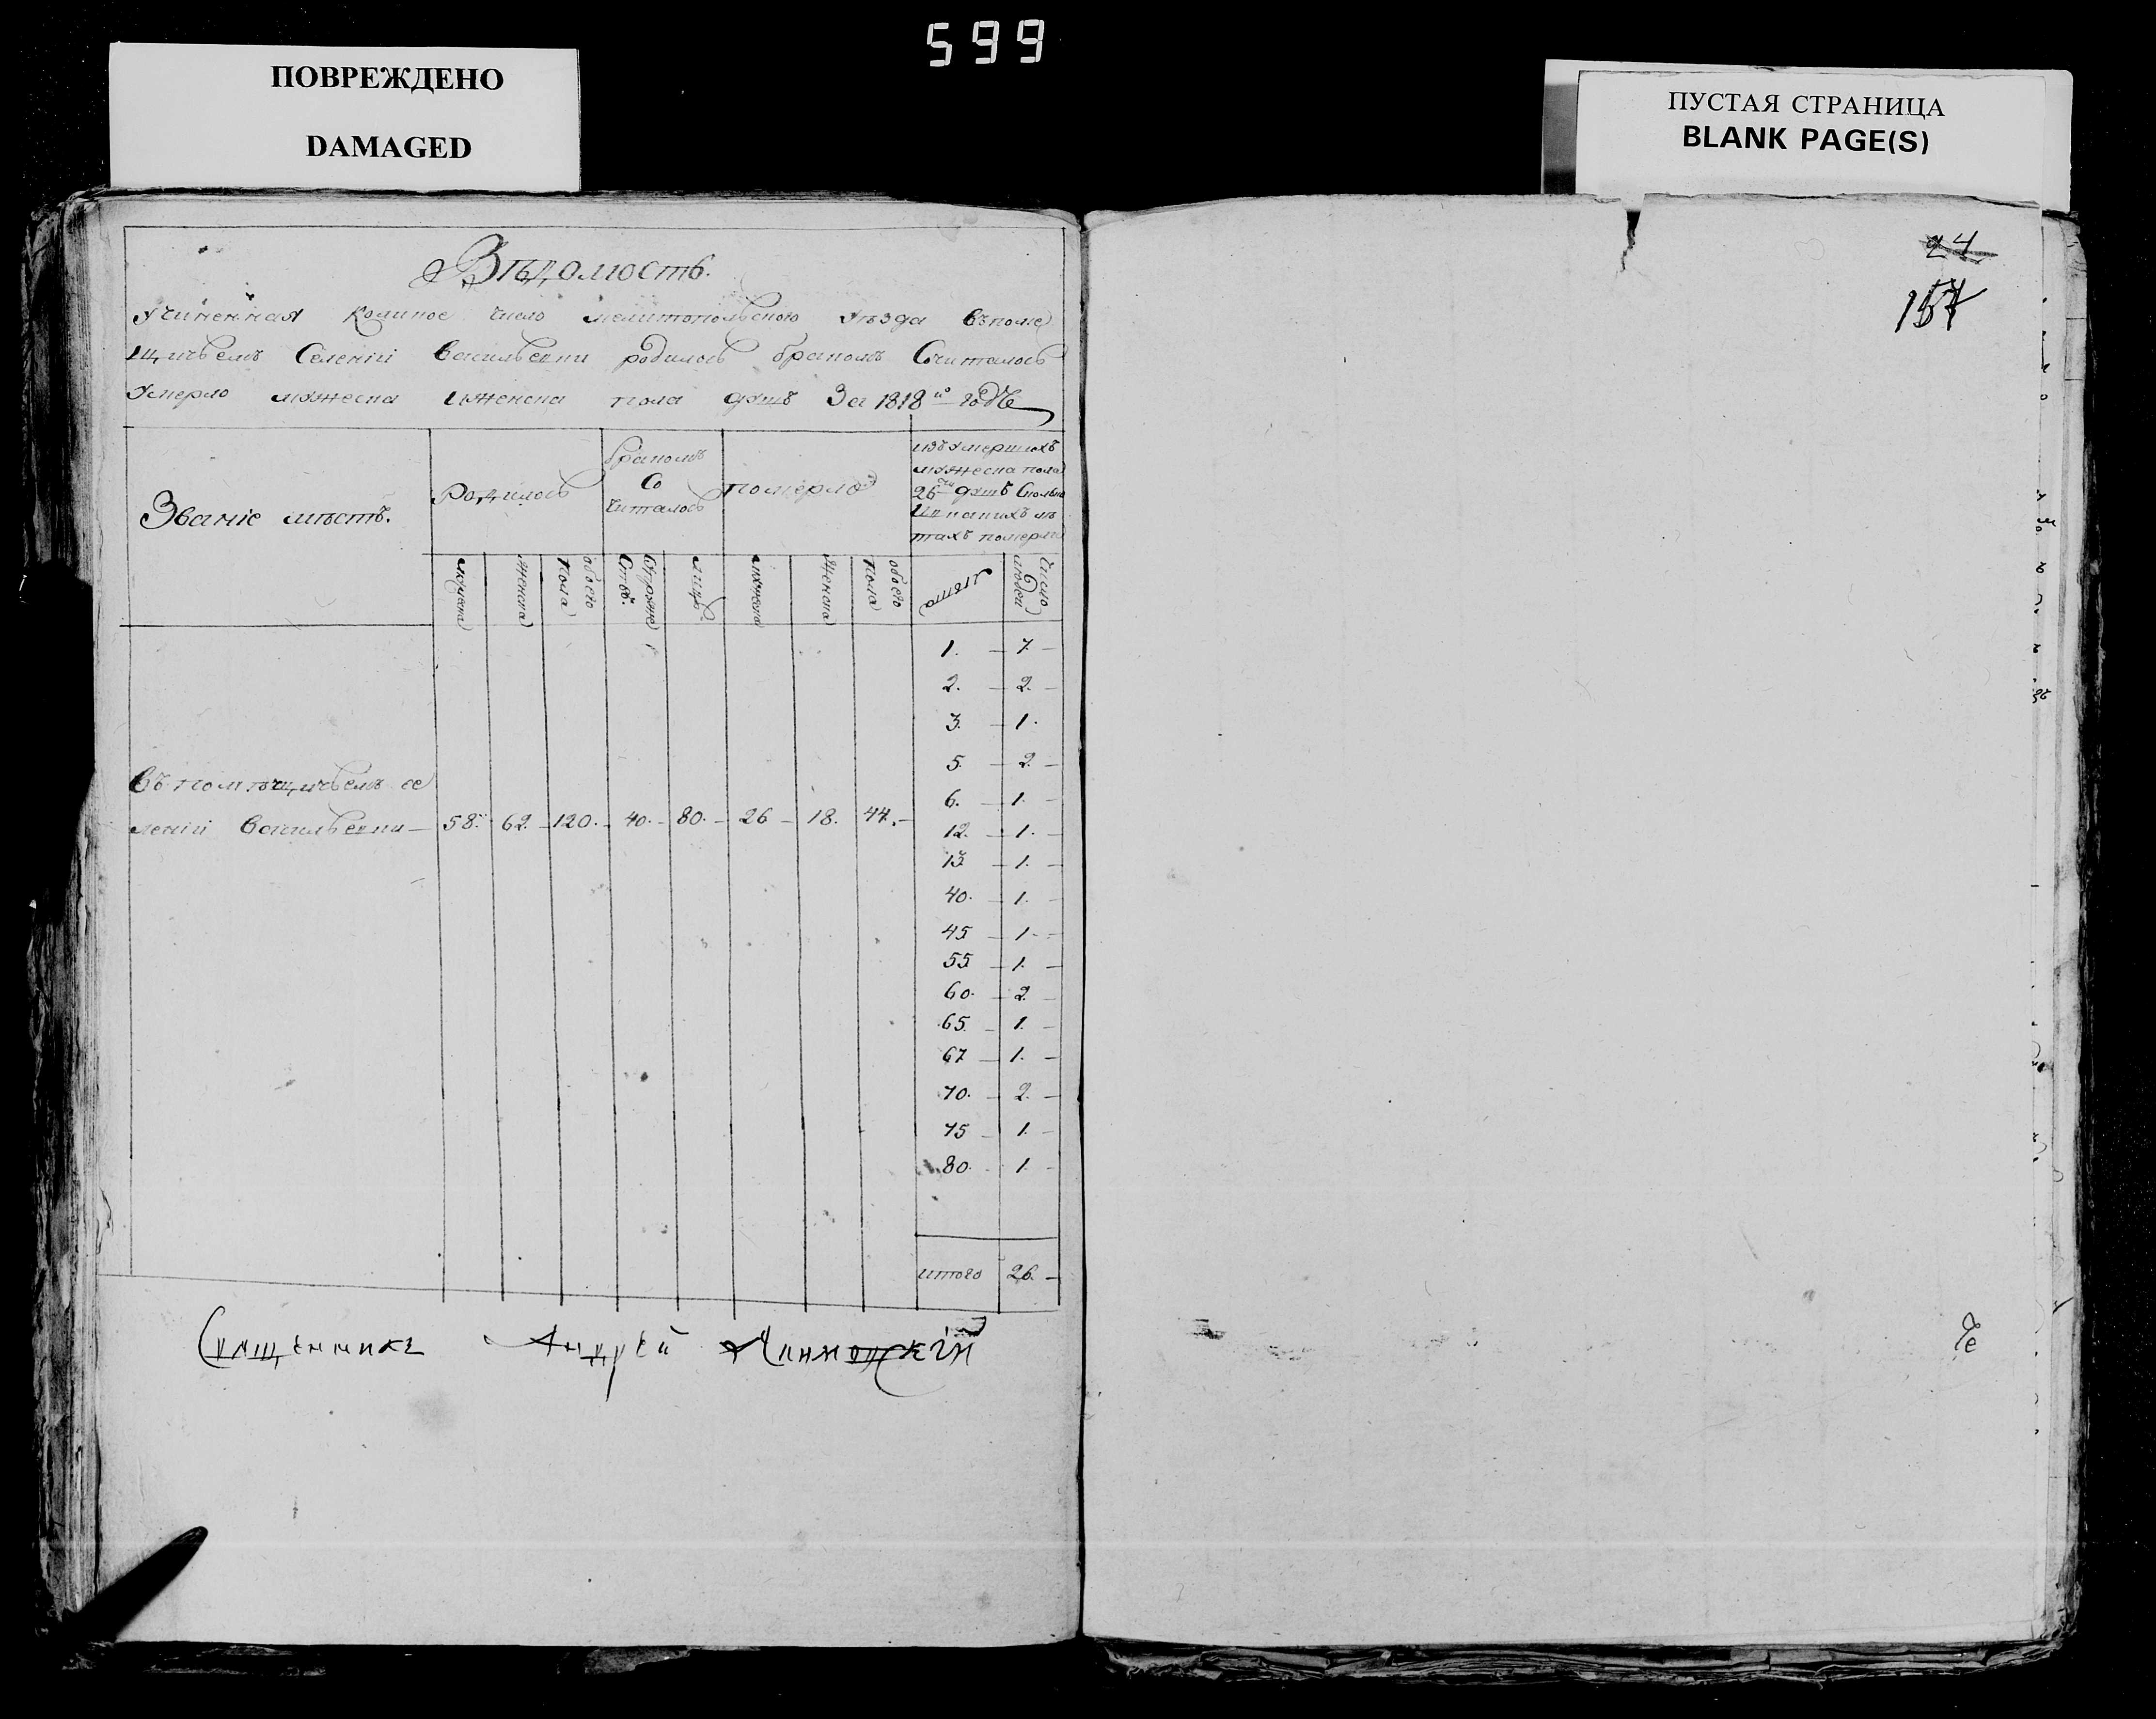 599
ПОВРЕЖДЕНО
DAMAGED
ПУСТАЯ СТРАНИЦА
BLANK PAGE(S)
Вѣдомость.
Учиненная Коликое число мелитопольского уѣзда въ поме
щичьемъ Селеніи Васильевки родилось бракомъ Сочиталось
Умерло мужеска и женска пола душъ За 1818й годъ
Званіе мѣстъ.
Родилось
бракомъ
Со
читалось
померло
изъ умершихъ
мужеска пола
26ти душъ Сколько
и въ какихъ лѣ
тахъ померло
мужеска
женска
обоего
пола
Супруже
Ствъ.
лицъ
мужеска
женска
обоего
пола
лѣта
число
людей
1. 7.
2. 2.
3. 1.
5. 2.
6. 1.
12. 1.
13 1.
40. 1.
45 1.
55 1.
60. 2.
65. 1.
67 1.
70. 2.
75 1.
80. 1.
итого 26.
въ помѣщичьемъ се
леніи Васильевки 58. 62. 120. 40. 80. 26 18. 44.
Священникъ Андрей
24